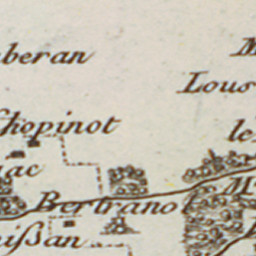 beran
M
Lous
Chopinot
le
ac
Bertranot
M
ißan